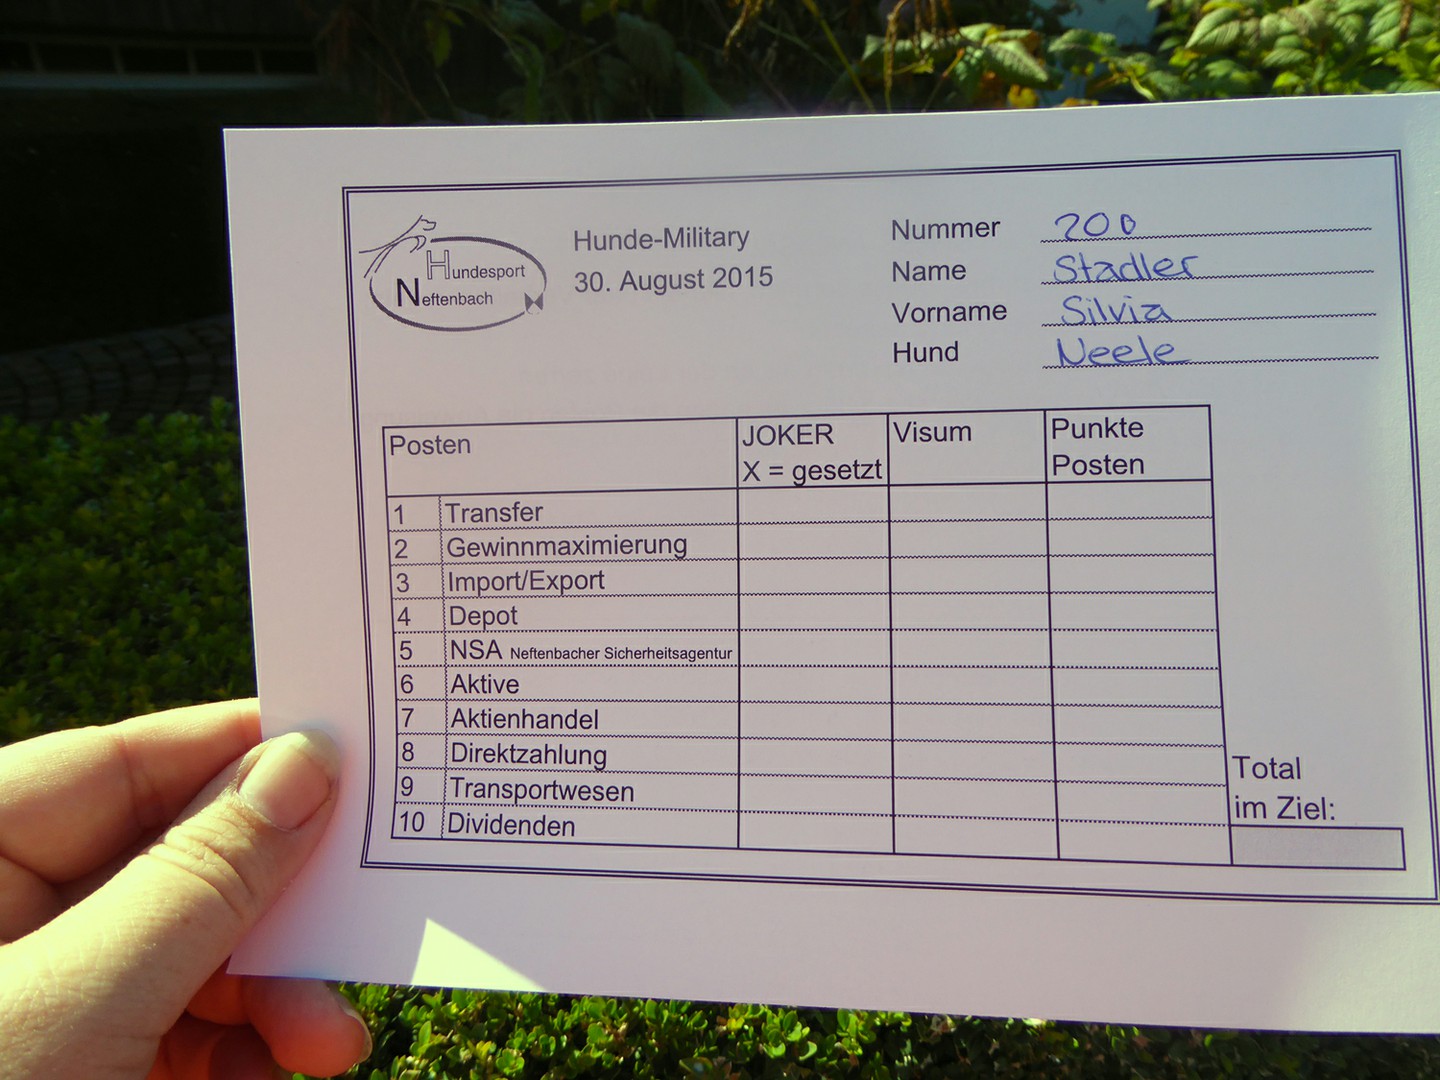 Hundesport
Neftenbach
Hunde-Military
30. August 2015
Nummer 200
Name Stadler
Vorname Silvia
Hund Neele
Posten JOKER X = gesetzt Visum Punkte Posten
1 Transfer
2 Gewinnmaximierung
3 Import/Export
4 Depot
5 NSA Neftenbacher Sicherheitsagentur
6 Aktive
7 Aktienhandel
8 Direktzahlung
9 Transportwesen
10 Dividenden
Total
im Ziel: